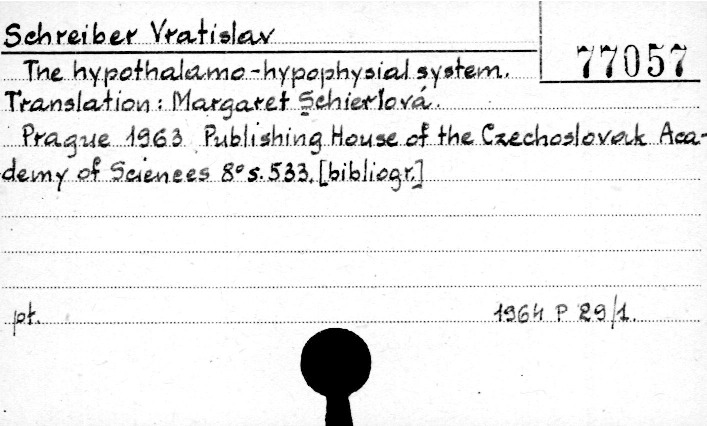 Schreiber Vratislav
77057
The hypothalamo-hypophysial system.
Translation: Margaret Schierlová.
Prague 1963 Publishing House of the Czechoslovak Aca-
demy of Sciences 8° s. 533. [bibliogr.]
pt.
1964 P 29/1.